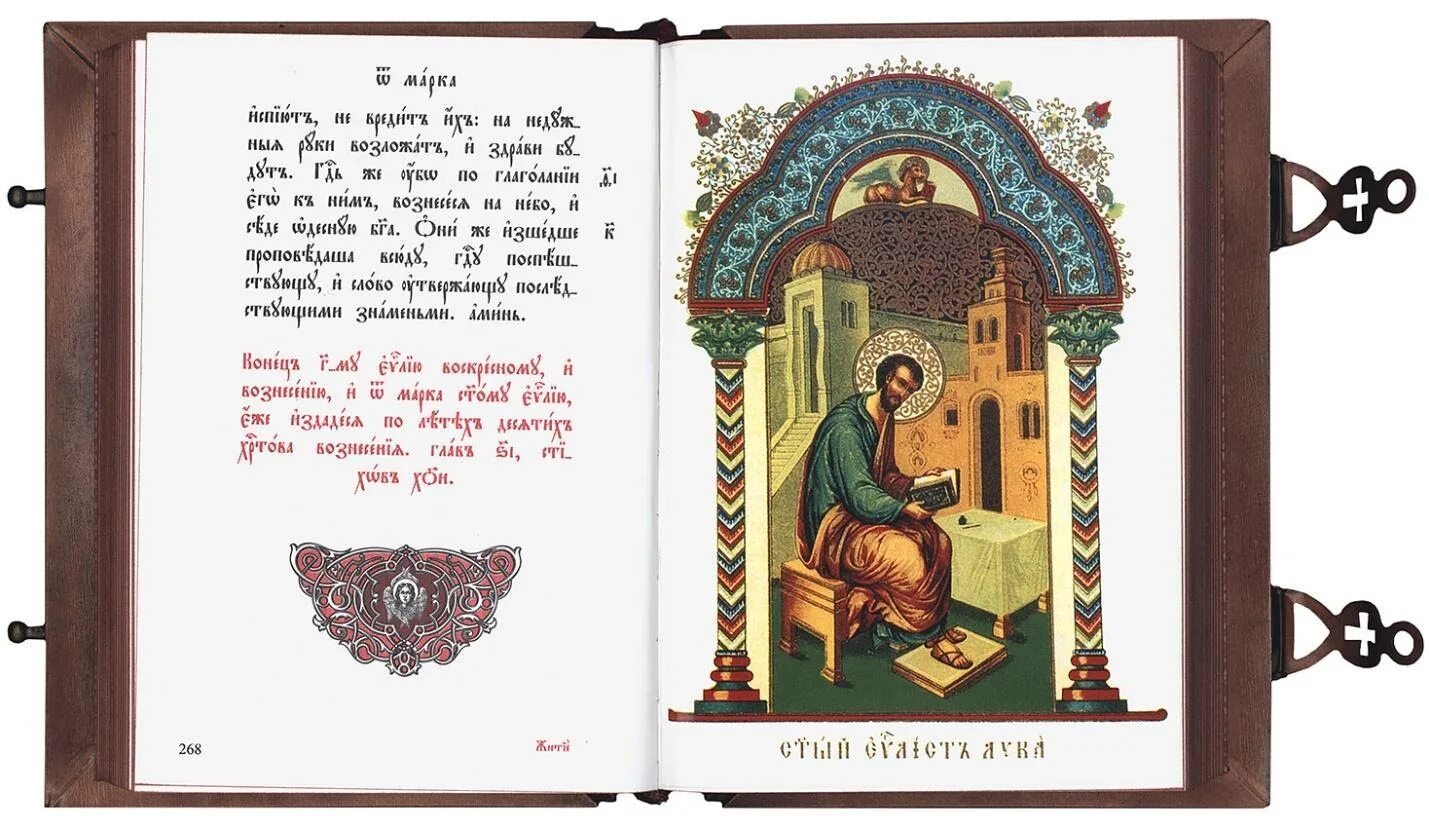 Ѿ ма́рка
и҆спїю́тъ, не вреди́тъ и҆́хъ: на неду́ж_
ныя ру́ки возложа́тъ, и҆ здра́ви бу́_
дутъ. Гдⷭ҇ь же ᲂу҆́бѡ по глаго́ланїи
є҆гѡ̀ къ ни̑мъ, вознесе́сѧ на не́бо, и҆
сѣ́де ѡ҆десну́ю бг҃а. Ѻ҆ни́ же и҆зше́дше
проповѣ́даша всю́ду, гдⷭ҇у поспѣ́ш_
ствующу, и҆ сло́во ᲂу҆твержа́ющу послѣ́д_
ствующими зна́меньми. а҆ми́нь.
ѳ҃і
к҃
Коне́цъ г҃_му є҆ѵⷢ҇лїю воскре́сному, и҆
вознесе́нїю, и҆ Ѿ ма́рка ст҃о́му є҆ѵⷢ҇лїю,
є҆́же и҆здаде́сѧ по лѣ́тѣхъ десѧти́хъ
хрⷭ҇то́ва вознесе́нїѧ. гла́въ ѕ҃і, сті_
хѡ́въ хо҃и.
268
Житїе
СТ҃ЫЙ Є҆Ѵⷢ҇ЛІСТЪ ЛУКА